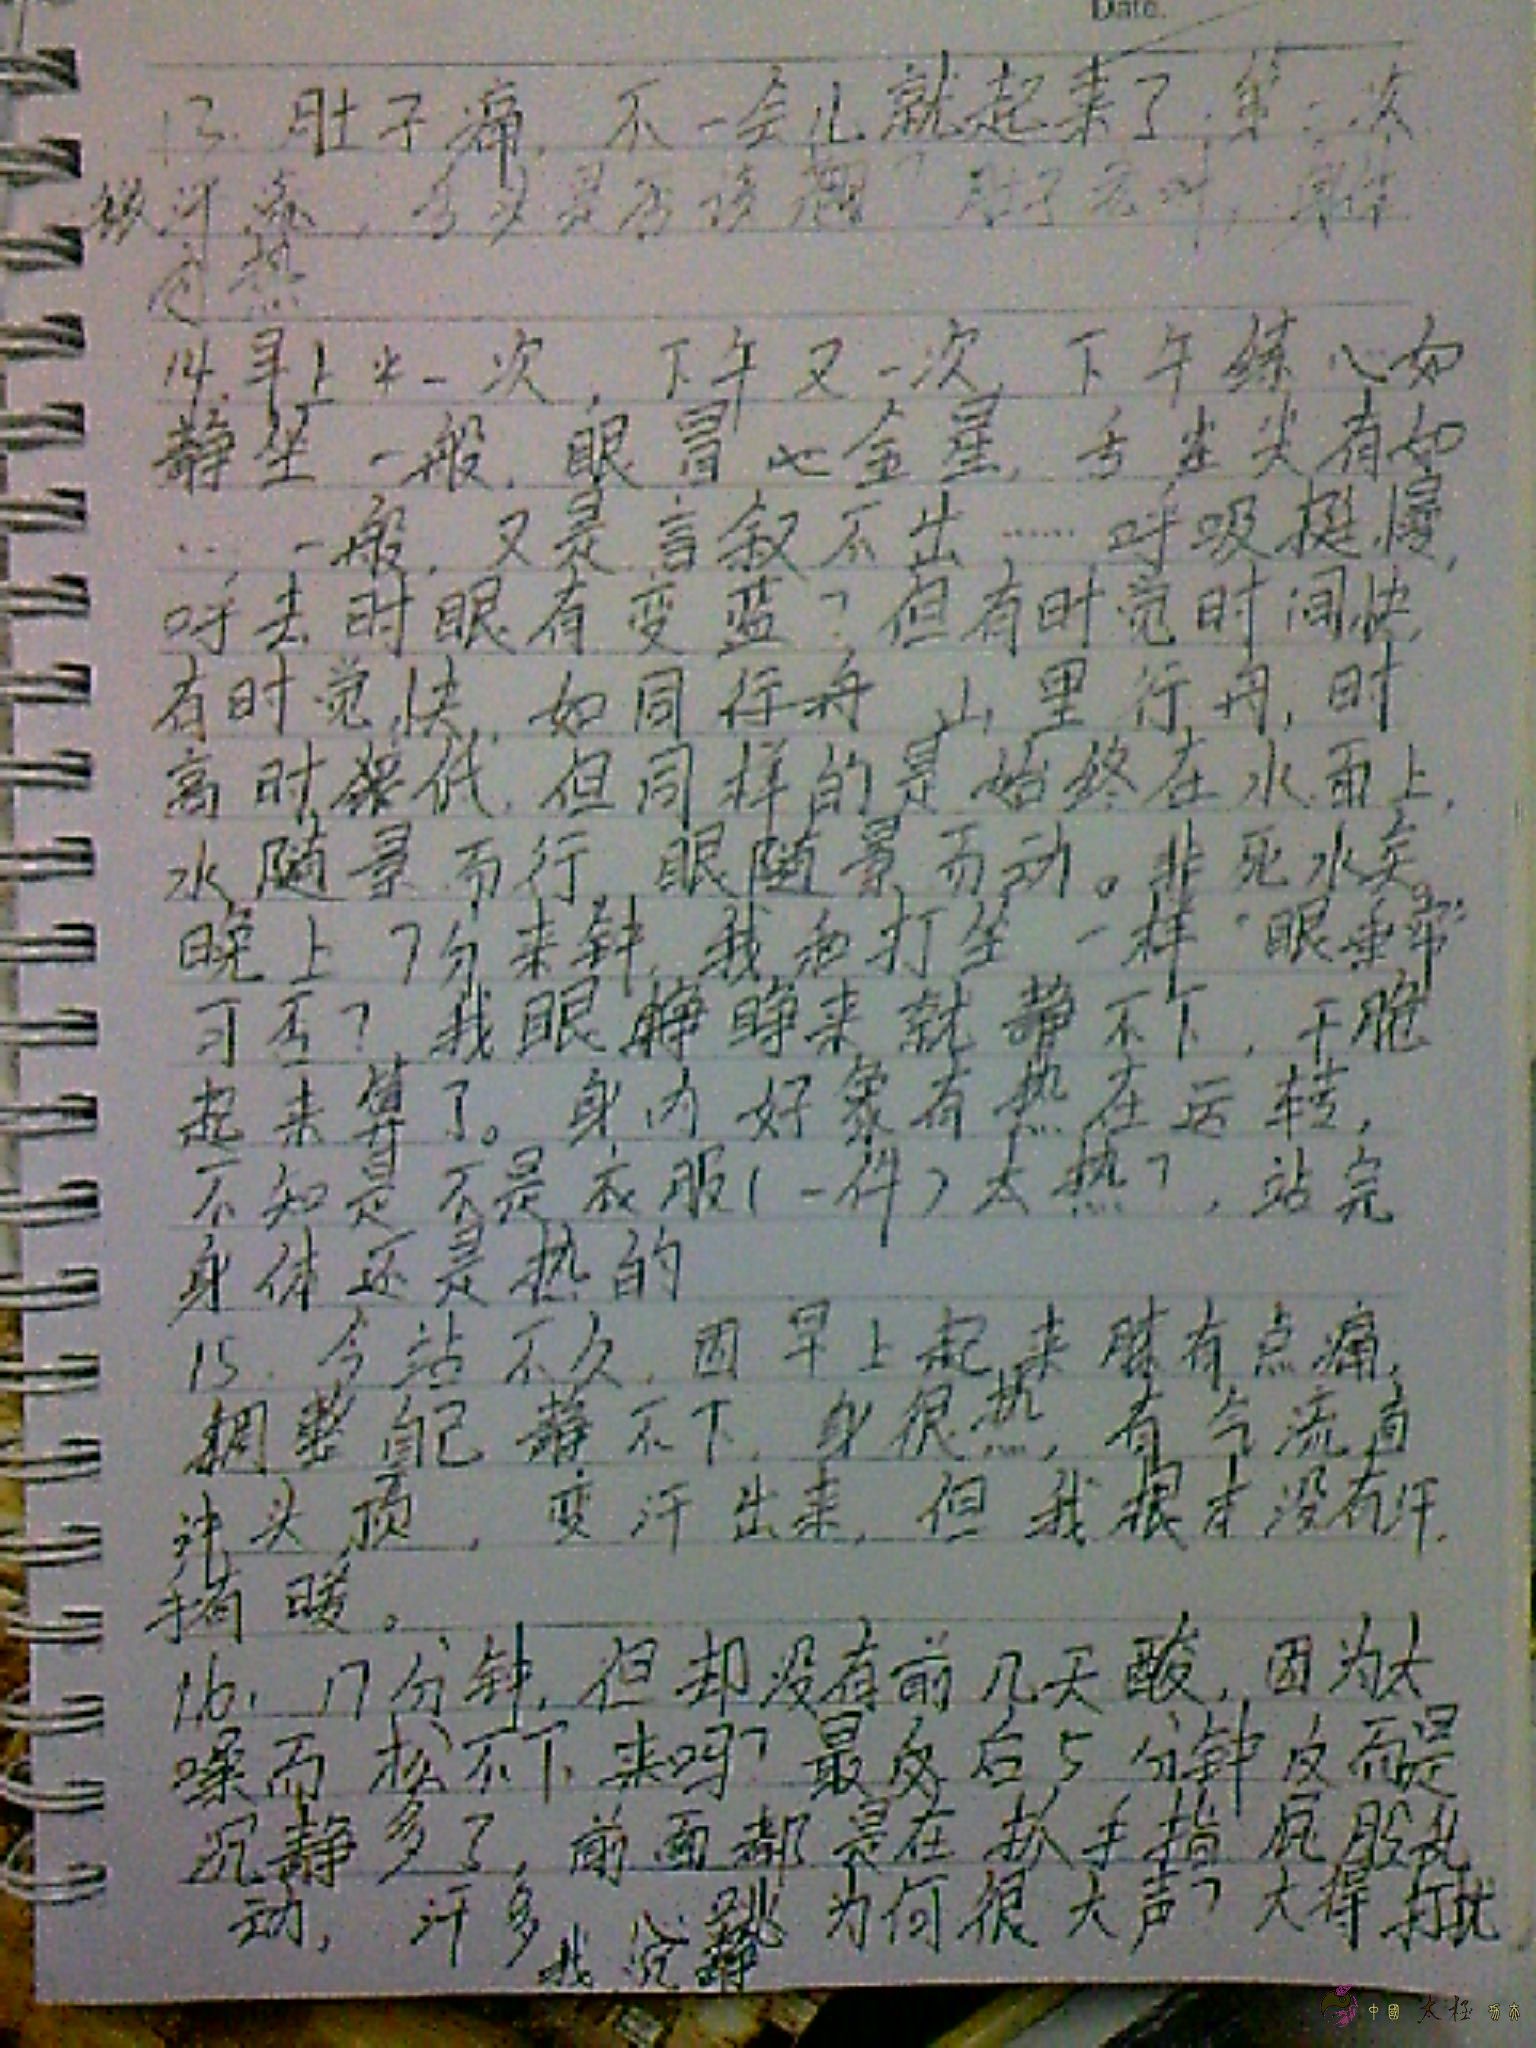 Date.
13. 肚子痛，不一会儿就起来了，第二次
汗流，舌头是否该翘？肚子会叫，身体
定热
14. 早上一次，下午又一次，下午练心如
静坐一般，眼冒金星，舌尖有如
……一般，又是言叙不出……呼吸挺慢，
呼去时眼有变蓝？但有时觉时间快，
有时觉快，如同行舟，山里行舟，时
高时低，但同样的是始终在水面上，
水随景而行，眼随景而动。非死水矣。
晚上7分来钟，我和打坐一样“眼垂帘”
可否？我眼睁睁来就静不下，干脆
起来算了。身内好象有热在运转，
不知是不是衣服（一件）太热？，站完
身体还是热的
15. 今站不久，因早上起来膝有点痛，
调整自己静不下，身很热，有气流直
冲头顶，变汗出来，但我根本没有汗，
手有暖。
16. 17分钟，但却没有前几天酸，因为太
噪而松不下来吗？最后5分钟反而是
沉静多了，前面都是在抓手指屁股乱
动，汗多，心跳为何很大声？大得打扰
我沉静
中國太極